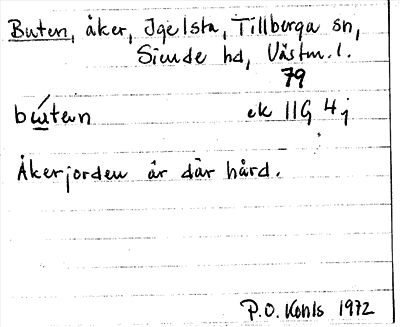 Buten, åker, Igelsta, Tillberga sn,
Siende hd, Västm. l.
79
bú̲ten ek 11G 4j
Åkerjorden är där hård.
P.O. Kohls 1972